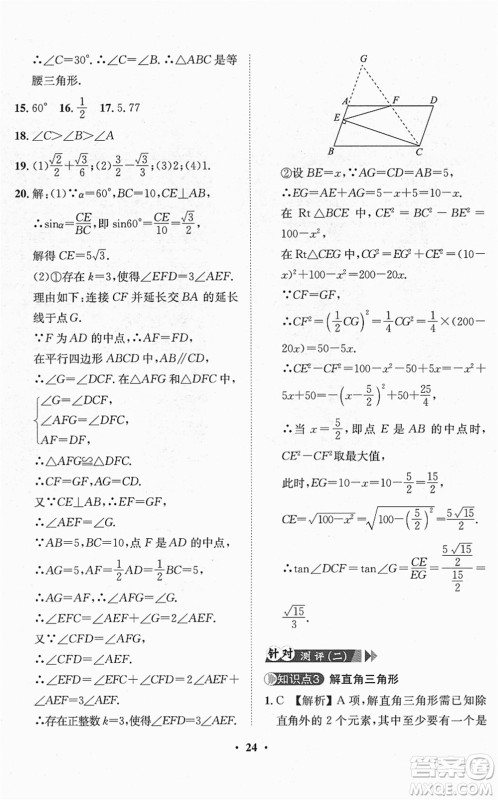 ∴∠C=30°. ∴∠A=∠C. ∴△ABC 是等
腰三角形.
15. 60°  16. 1/2  17. 5.77
18. ∠C>∠B>∠A
19. (1)√2/2+√3/6;(2)3/2-√2;(3)2;(4)1.
20. 解:(1)∵α=60°,BC=10,CE⊥AB,
∴sinα=CE/BC,即 sin60°=CE/10=√3/2,
解得 CE=5√3.
(2)①存在 k=3,使得∠EFD=3∠AEF.
理由如下:连接 CF 并延长交 BA 的延长
线于点 G.
∵F 为 AD 的中点,∴AF=FD.
在平行四边形 ABCD 中,AB∥CD,
∴∠G=∠DCF. 在△AFG 和△DFC 中,
∠G=∠DCF,
∠AFG=∠DFC,
AF=DF,
∴△AFG≌△DFC.
∴CF=GF,AG=CD.
又∵CE⊥AB,∴EF=GF.
∴∠AEF=∠G.
∵AB=5,BC=10,点 F 是 AD 的中点,
∴AG=5,AF=1/2AD=1/2BC=5.
∴AG=AF. ∴∠AFG=∠G.
∴∠EFC=∠AEF+∠G=2∠AEF.
又∵∠CFD=∠AFG,
∴∠CFD=∠AEF.
∴∠EFD=∠EFC+∠CFD
=2∠AEF+∠AEF=3∠AEF.
∴存在正整数 k=3,使得∠EFD=3∠AEF.
G
A F D
E
B C
②设 BE=x,∵AG=CD=AB=5,
∴EG=AE+AG=5-x+5=10-x.
在 Rt△BCE 中,CE²=BC²-BE²=
100-x².
在 Rt△CEG 中,CG²=EG²+CE²=(10
-x)²+100-x²=200-20x.
∵CF=GF,
∴CF²=(1/2CG)²=1/4CG²=1/4×(200-
20x)=50-5x.
∴CE²-CF²=100-x²-50+5x=-x²+
5x+50=-(x-5/2)²+50+25/4.
∴当 x=5/2,即点 E 是 AB 的中点时,
CE²-CF² 取最大值,
此时,EG=10-x=10-5/2=15/2,
CE=√(100-x²)=√(100-(5/2)²)=5√15/2.
∴tan∠DCF=tan∠G=CE/EG=(5√15/2)/(15/2)=
√15/3.
针对 测评(二)
知识点3 解直角三角形
1. C 【解析】A 项,解直角三角形需已知除
直角外的 2 个元素,其中至少要有一个是
· 24 ·